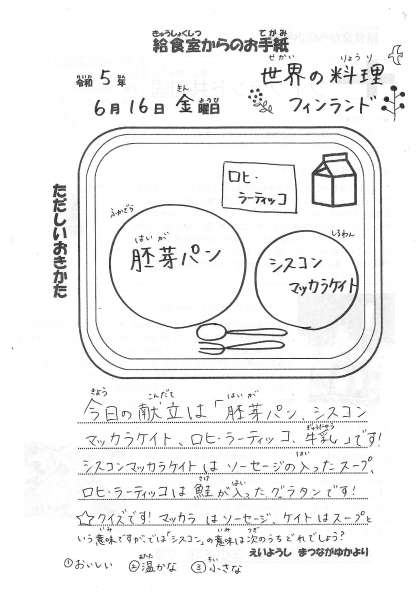 給食室からのお手紙
令和5年
6月16日金曜日
世界の料理
フィンランド
ただしいおきかた
ロヒ・
ラーティッコ
ふかざら
胚芽パン
しろわん
シスコン
マッカラケイト
今日の献立は「胚芽パン、シスコン
マッカラケイト、ロヒ・ラーティッコ、牛乳」です!
シスコンマッカラケイトはソーセージの入ったスープ、
ロヒ・ラーティッコは鮭が入ったグラタンです!
☆クイズです!マッカラはソーセージ、ケイトはスープと
いう意味ですが、では「シスコン」の意味は次のうちどれでしょう?
えいようし まつながゆかより
①おいしい ②温かな ③小さな